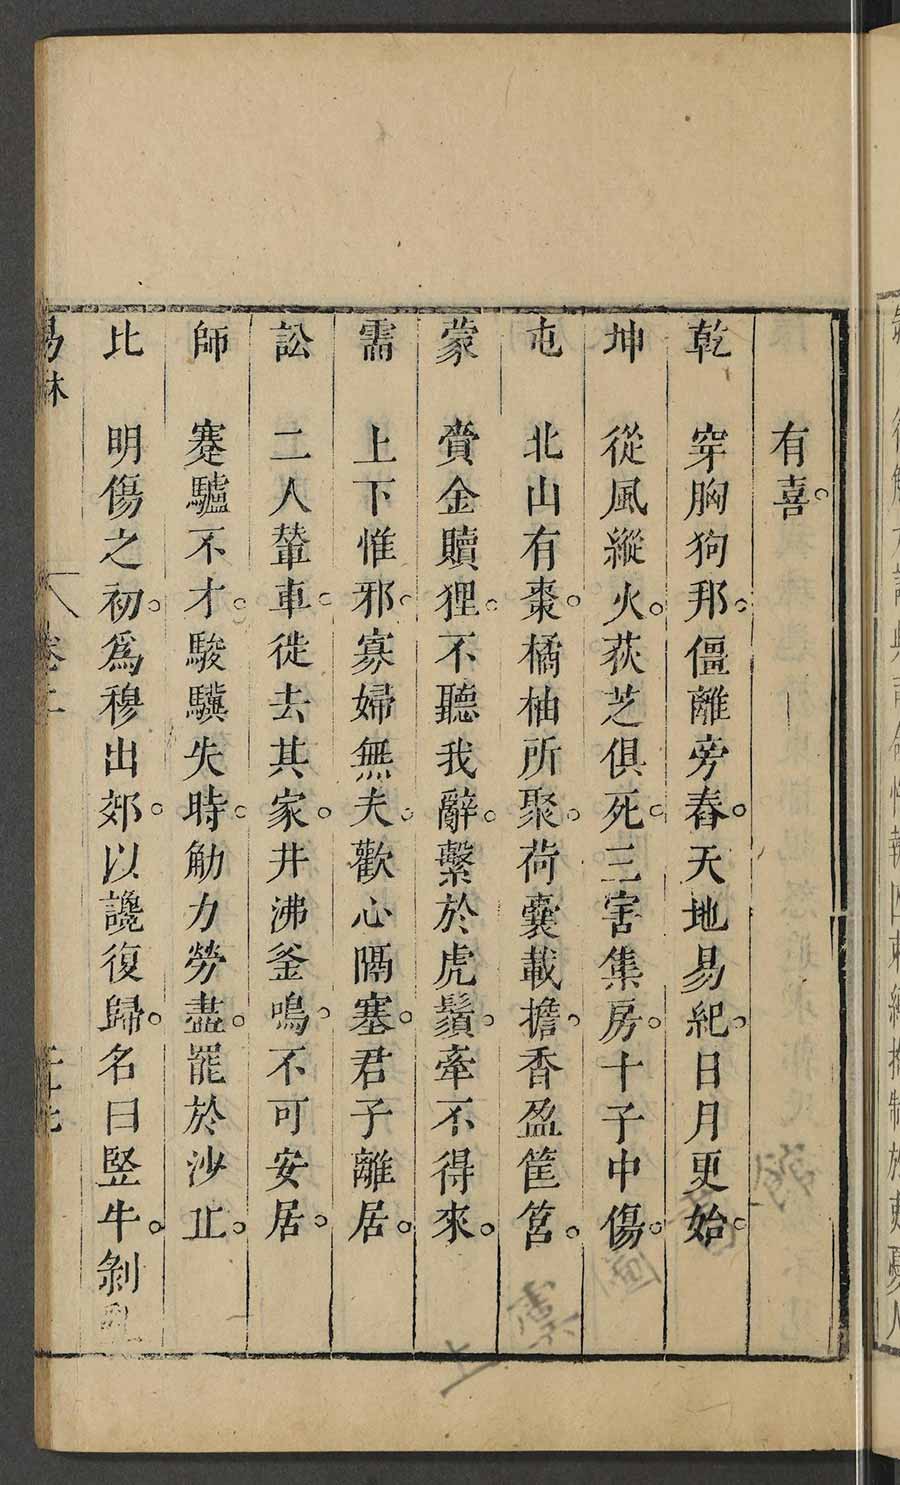 有喜。
乾 穿胸狗邦。僵離旁舂。天地易紀。日月更始。
坤 從風縱火。荻芝俱死。三害集房。十子中傷。
屯 北山有棗。橘柚所聚。荷囊載擔。香盈筐筥。
蒙 賫金贖狸。不聽我辭。繫於虎鬚。牽不得來。
需 上下惟邪。寡婦無夫。歡心隔塞。君子離居。
訟 二人輦車。徙去其家。井沸釜鳴。不可安居。
師 蹇驢不才。駿驥失時。觔力勞盡。罷於沙丘。
比 明傷之初。為穆出郊。以讒復歸。名曰豎牛。剝亂
易林
卷上